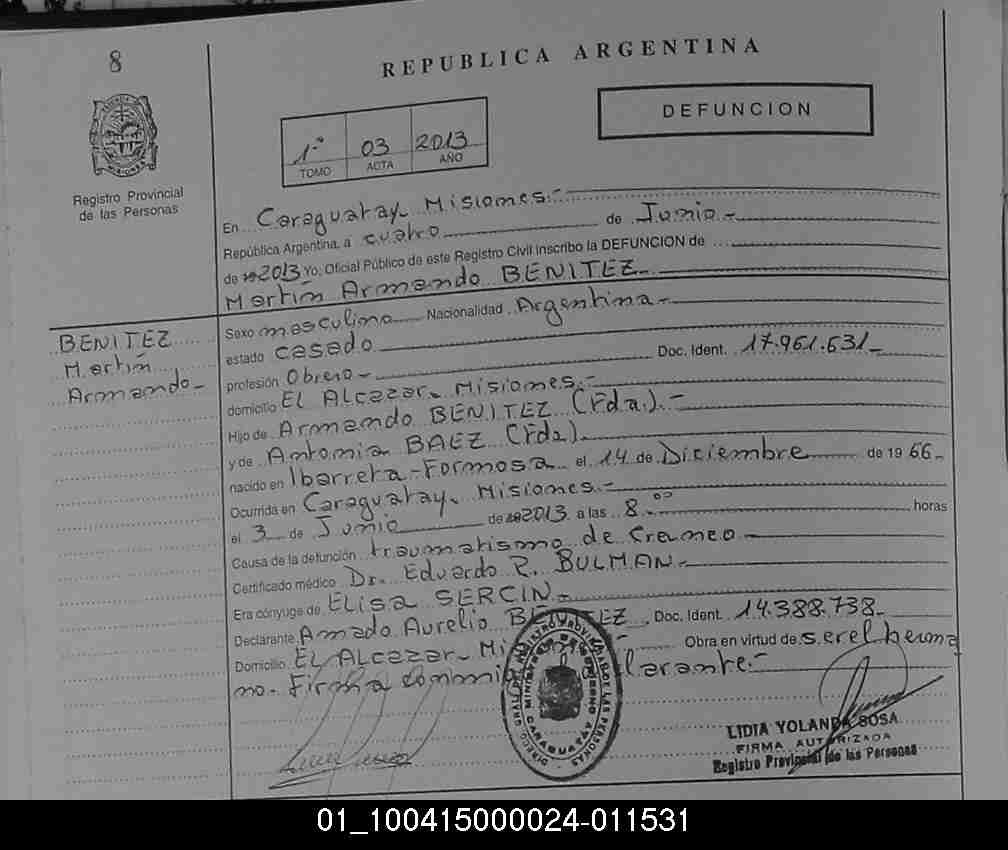 8
REPUBLICA ARGENTINA
DEFUNCION
1º 03 2013
TOMO ACTA AÑO
Registro Provincial
de las Personas
En Caraguatay- Misiones.-
República Argentina, a cuatro de Junio.-
de 2013 Yo, Oficial Público de este Registro Civil inscribo la DEFUNCION de
Martín Armando BENITEZ
BENITEZ
Martín
Armando-
Sexo masculino Nacionalidad Argentina-
estado casado
profesión Obrero- Doc. Ident. 17.961.631-
domicilio EL Alcazar- Misiones.-
Hijo de Armando BENITEZ (Fda.).-
y de Antonia BAEZ (Fda).
nacido en Ibarreta-Formosa el 14 de Diciembre de 1966-
Ocurrida en Caraguatay- Misiones.-
el 3 de Junio de 2013 a las 8.00 horas
Causa de la defunción traumatismo de Craneo
Certificado médico Dr. Eduardo R. BULMAN.-
Era cónyuge de ELISA SERCIN.-
Declarante Amado Aurelio BENITEZ Doc. Ident. 14.388.738-
Domicilio EL Alcazar- Obra en virtud de ser el herma
no. Firma conmigo larante.-
LIDIA YOLANDA SOSA
FIRMA AUTORIZADA
Registro Provincial de las Personas
01_100415000024-011531